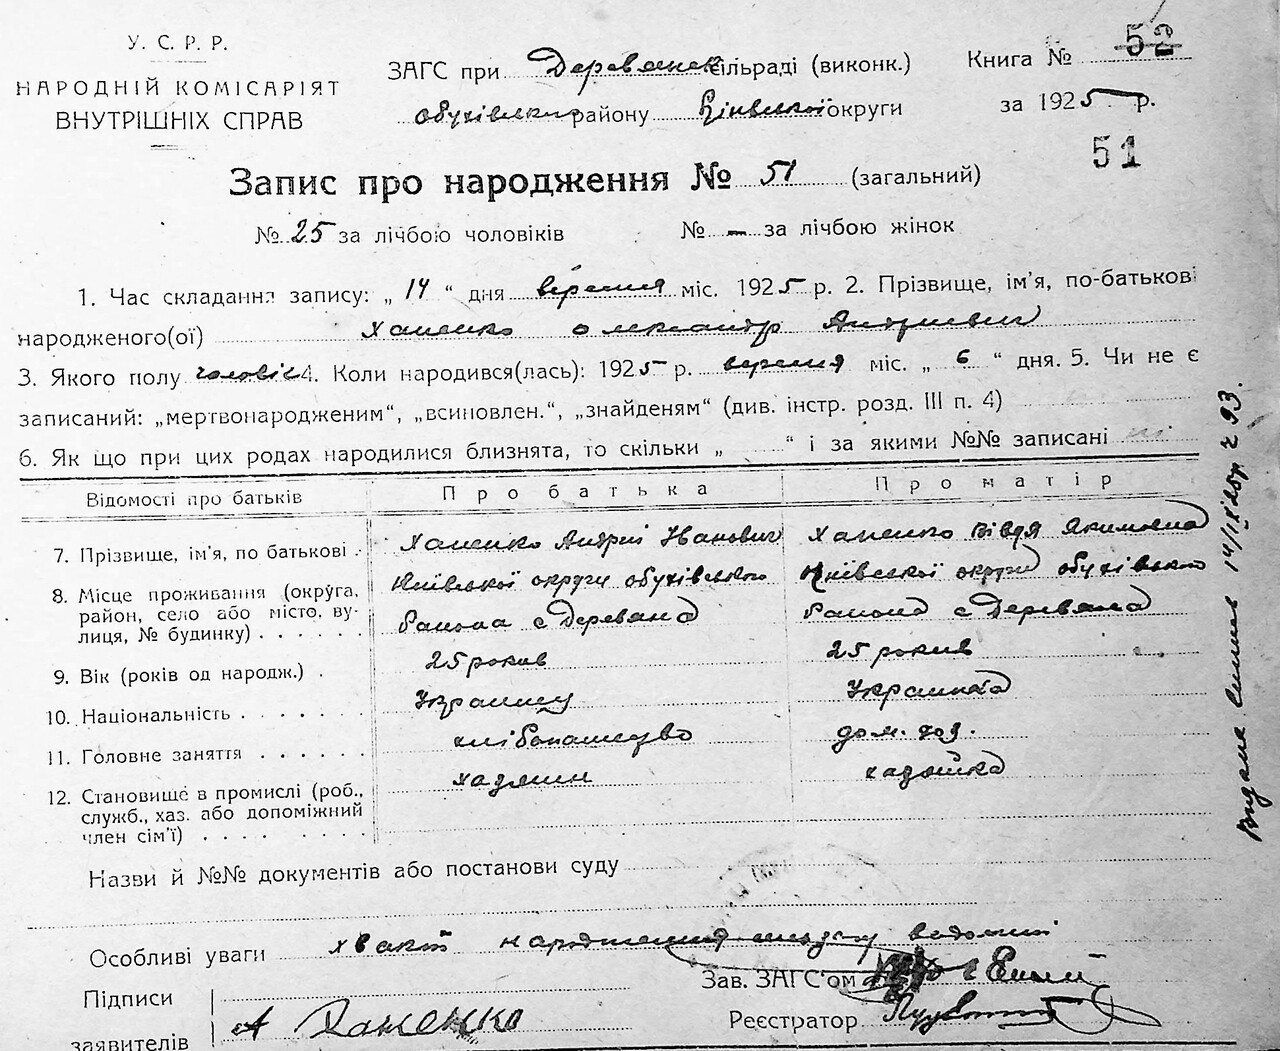 У. С. Р. Р.
НАРОДНІЙ КОМІСАРІЯТ
ВНУТРІШНІХ СПРАВ
ЗАГС при Деревянск сільраді (виконк.)
обухівськ району Київської округи
Книга № 52
за 1925 р.
51
Запис про народження № 51 (загальний)
№ 25 за лічбою чоловіків № — за лічбою жінок
1. Час складання запису: „ 14 “ дня вересня міс. 1925 р. 2. Прізвище, ім’я, по-батькові
народженого(ої) Ханенко Олександр Андриевич
3. Якого полу чоловіч 4. Коли народився(лась): 1925 р. вересня міс. „ 6 “ дня. 5. Чи не є
записаний: „мертвонародженим“, „всиновлен.“, „знайденям“ (див. інстр. розд. III п. 4)
6. Як що при цих родах народилися близнята, то скільки „ “ і за якими №№ записані ні
Відомості про батьків Про батька Про матір
7. Прізвище, ім’я, по батькові Ханенко Андрій Иванович Ханенко Вівдя Якимовна
8. Місце проживання (округа, район, село або місто, вулиця, № будинку) Київської округи обухівського Київської округи обухівського
Района с Деревяна Района с Деревяна
9. Вік (років од народж.) 25 рокив 25 рокив
10. Національність Украинец Украинка
11. Головне заняття хлібопашество дом. хоз.
12. Становище в промислі (роб., служб., хаз. або допоміжний член сім’ї) хадяин хадяйка
Назви й №№ документів або постанови суду
Особливі уваги народження
Підписи
заявителів А Ханенко
Зав. ЗАГС’ом
Реєстратор
Видана 14/IX 25р. ч 93.